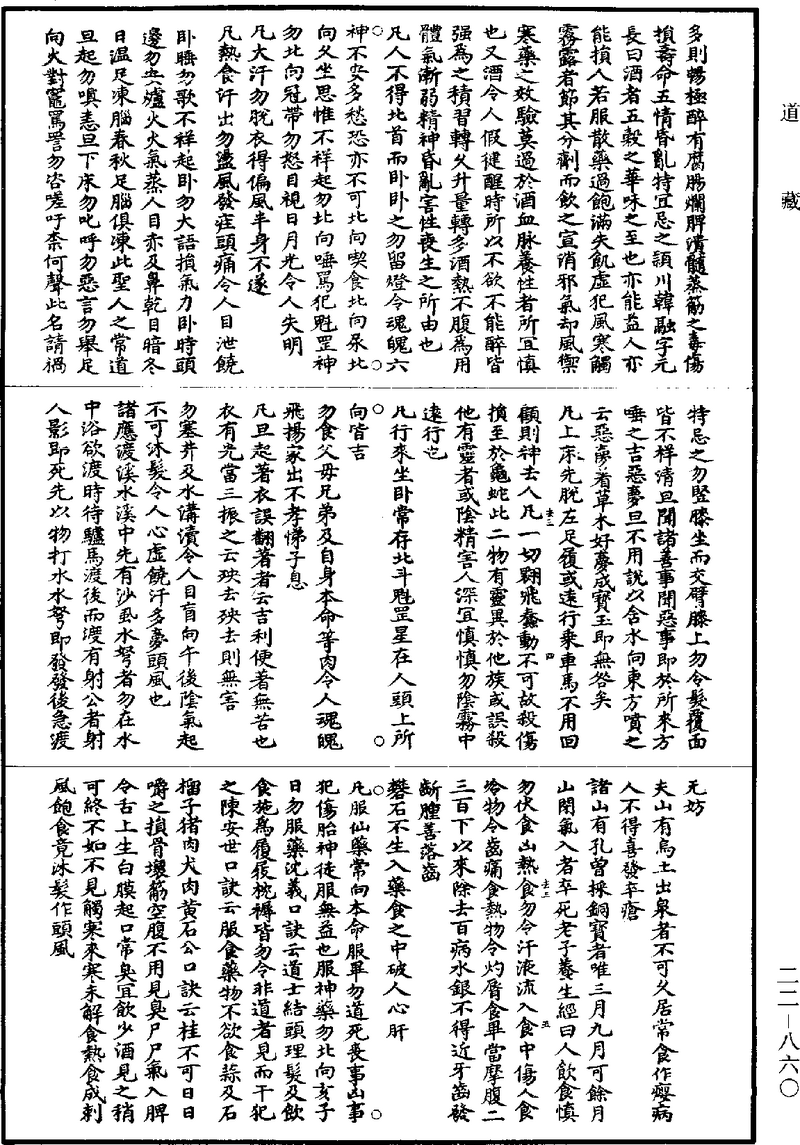 道 藏
二二—八六〇
多則暢極醉有腐腸爛脾潰髓蒸筋之毒傷
損壽命五情昏亂特宜忌之潁川韓融字元
長曰酒者五穀之華味之至也亦能益人亦
能損人若服散藥過飽滿失飢虛犯風寒觸
霧露者節其分劑而飲之宣消邪氣却風禦
寒藥之效驗莫過於酒血脉養性者所宜慎
也又酒令人假健醒時所以不欲不能醉皆
强為之積習轉久升量轉多酒熱不腹為用
體氣漸弱精神昏亂害性喪生之所由也
凡人不得北首而卧卧之勿留燈令魂魄六
神不安多愁恐亦不可北向喫食北向尿北
向久坐思惟不祥起勿北向唾罵犯魁罡神
勿北向冠帶勿怒目視日月光令人失明
凡大汗勿脫衣得偏風半身不遂
凡熱食汗出勿盪風發痓頭痛令人目泄饒
卧睡勿歌不祥起卧勿大語損氣力卧時頭
邊勿安爐火火氣蒸人目亦及鼻乾目暗冬
日温足凍腦春秋足腦俱凍此聖人之常道
旦起勿嗔恚旦下床勿叱呼勿惡言勿舉足
向火對竈罵詈勿咨嗟吁柰何聲此名請禍
特忌之勿竪膝坐而交臂膝上勿令髮覆面
皆不祥清旦聞諸善事聞惡事即於所來方
唾之吉惡夢旦不用說以含水向東方噴之
云惡夢着草木好夢成寶玉即無咎矣
凡上床先脫左足履或遠行乘車馬不用回
顧則神去人凡一切翾飛蠢動不可故殺傷
損至於龜蛇此二物有靈異於他族或誤殺
他有靈者或陰精害人深宜慎慎勿陰霧中
遠行也
凡行來坐卧常存北斗魁罡星在人頭上所
向皆吉
勿食父母兄弟及自身本命等肉令人魂魄
飛揚家出不孝悌子息
凡旦起著衣誤翻著者云吉利便著無苦也
衣有光當三振之云殃去殃去則無害
勿塞井及水溝瀆令人目盲向午後陰氣起
不可沐髮令人心虛饒汗多夢頭風也
諸應渡溪水溪中先有沙虱水弩者勿在水
中浴欲渡時待驢馬渡後而渡有射公者射
人影即死先以物打水水弩即發發後急渡
无妨
夫山有烏土出泉者不可久居常食作癭病
人不得喜發卒瘡
諸山有孔曾採銅寶者唯三月九月可餘月
山閉氣入者卒死老子養生經曰人飲食慎
勿伏食凶熱食勿令汗液流入食中傷人食
冷物令齒痛食熱物令灼脣食畢當摩腹二
三百下以來除去百病水銀不得近牙齒發
齗腫善落齒
礬石不生入藥食之中破人心肝
凡服仙藥常向本命服畢勿道死喪事凶事
犯傷胎神徒服無益也服神藥勿北向亥子
日勿服藥沈義口訣云道士結頭理髮及飲
食施為履屐枕褥皆勿令非道者見而干犯
之陳安世口訣云服食藥物不欲食蒜及石
榴子猪肉犬肉黄石公口訣云桂不可日日
嚼之損骨壞筋空腹不用見臭尸尸氣入脾
令舌上生白膜起口常臭宜飲少酒見之稍
可終不如不見觸寒來寒未解食熱食成刺
風飽食竟沐髮作頭風